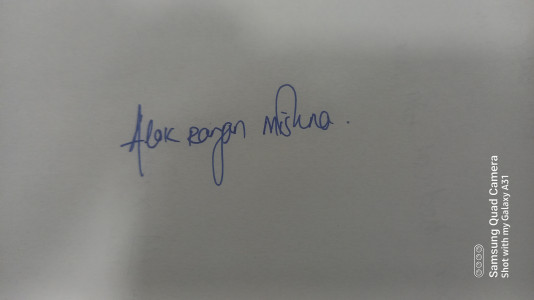 Alok Ranjan Mishra.
Samsung Quad Camera
Shot with my Galaxy A31